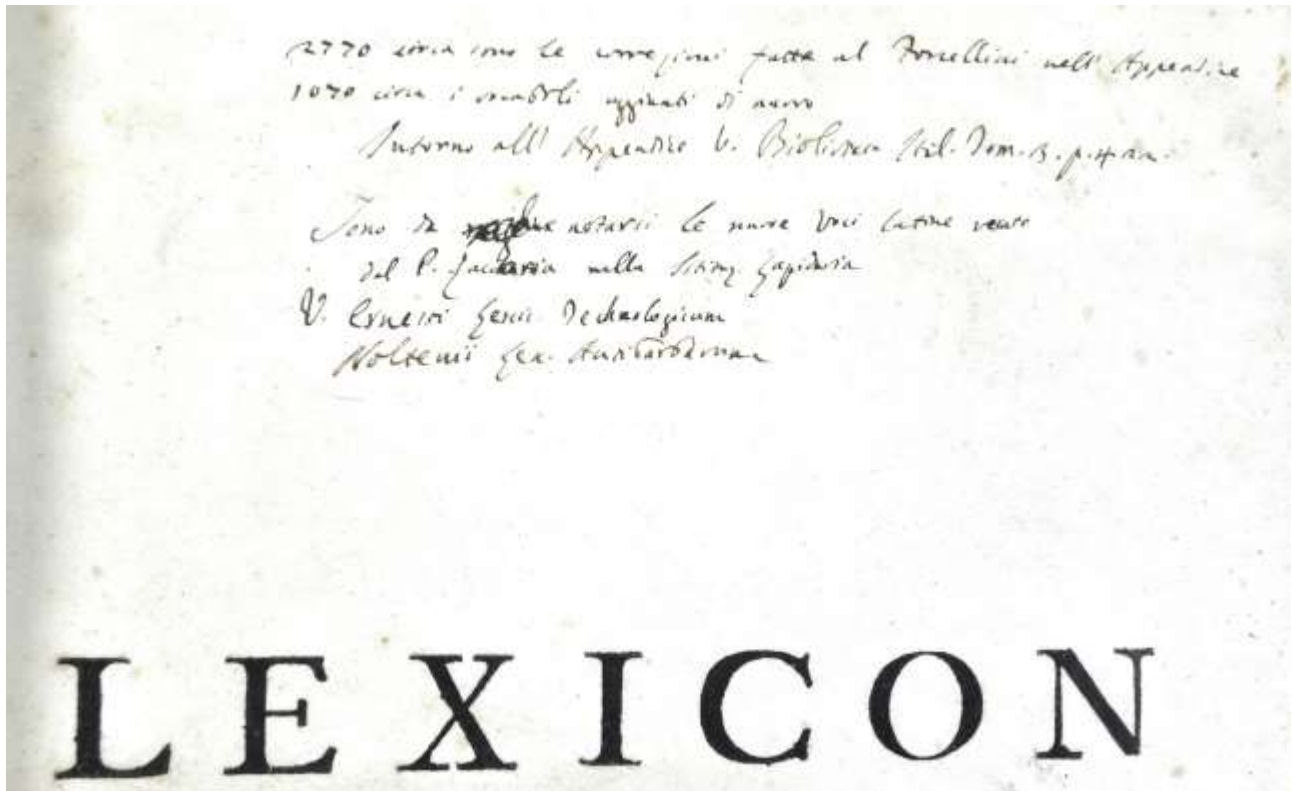 2770 circa sono le correzioni fatte al Forcellini nell' Appendice
1070 circa i vocaboli aggiunti di nuovo
Intorno all' Appendice V. Biblioteca Ital. Tom. 3. p.
Sono da notarsi le nuove voci latine
dal P. Zaccaria nella Lapidaria
V. Ernesti Lexic. Technologicum
Noltenii Lex. Antibarbarum
LEXICON